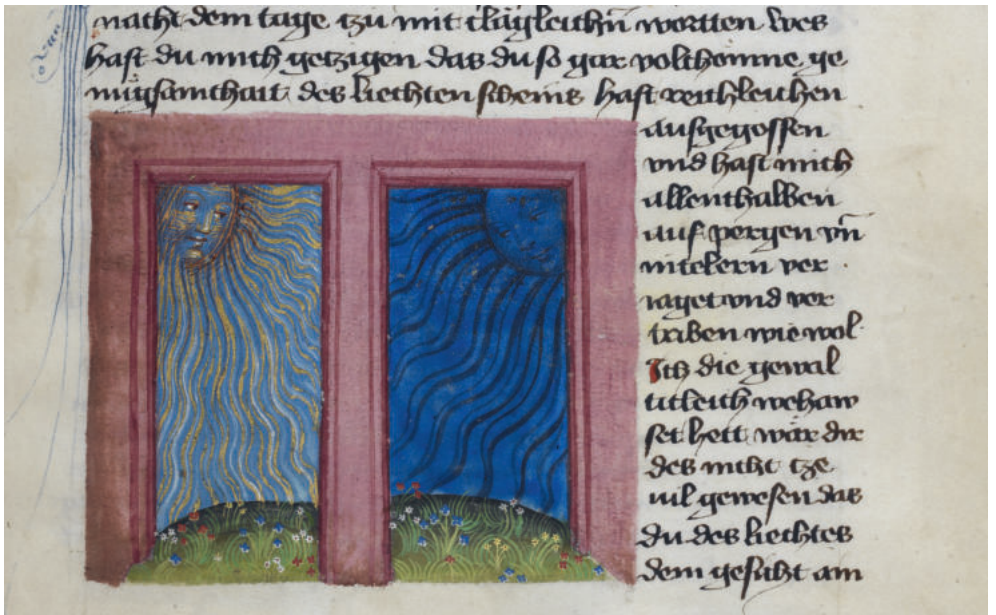 nacht dem tage tzu mitклägleichn̄ wortten wes
hast du mich getzigen das du so gar volchomne ge
nügsamthait des liechten scheins hast reichleichen
ausgegossen
vnd hast mich
allenthalben
auf pergen vn̄
mitelern ver
iaget vnd ver
triben wie wol
Ich die gewal
titleich wehaw
set hett wär dir
des nicht tze
uil gewesen das
du des liechtes
dem gesicht am